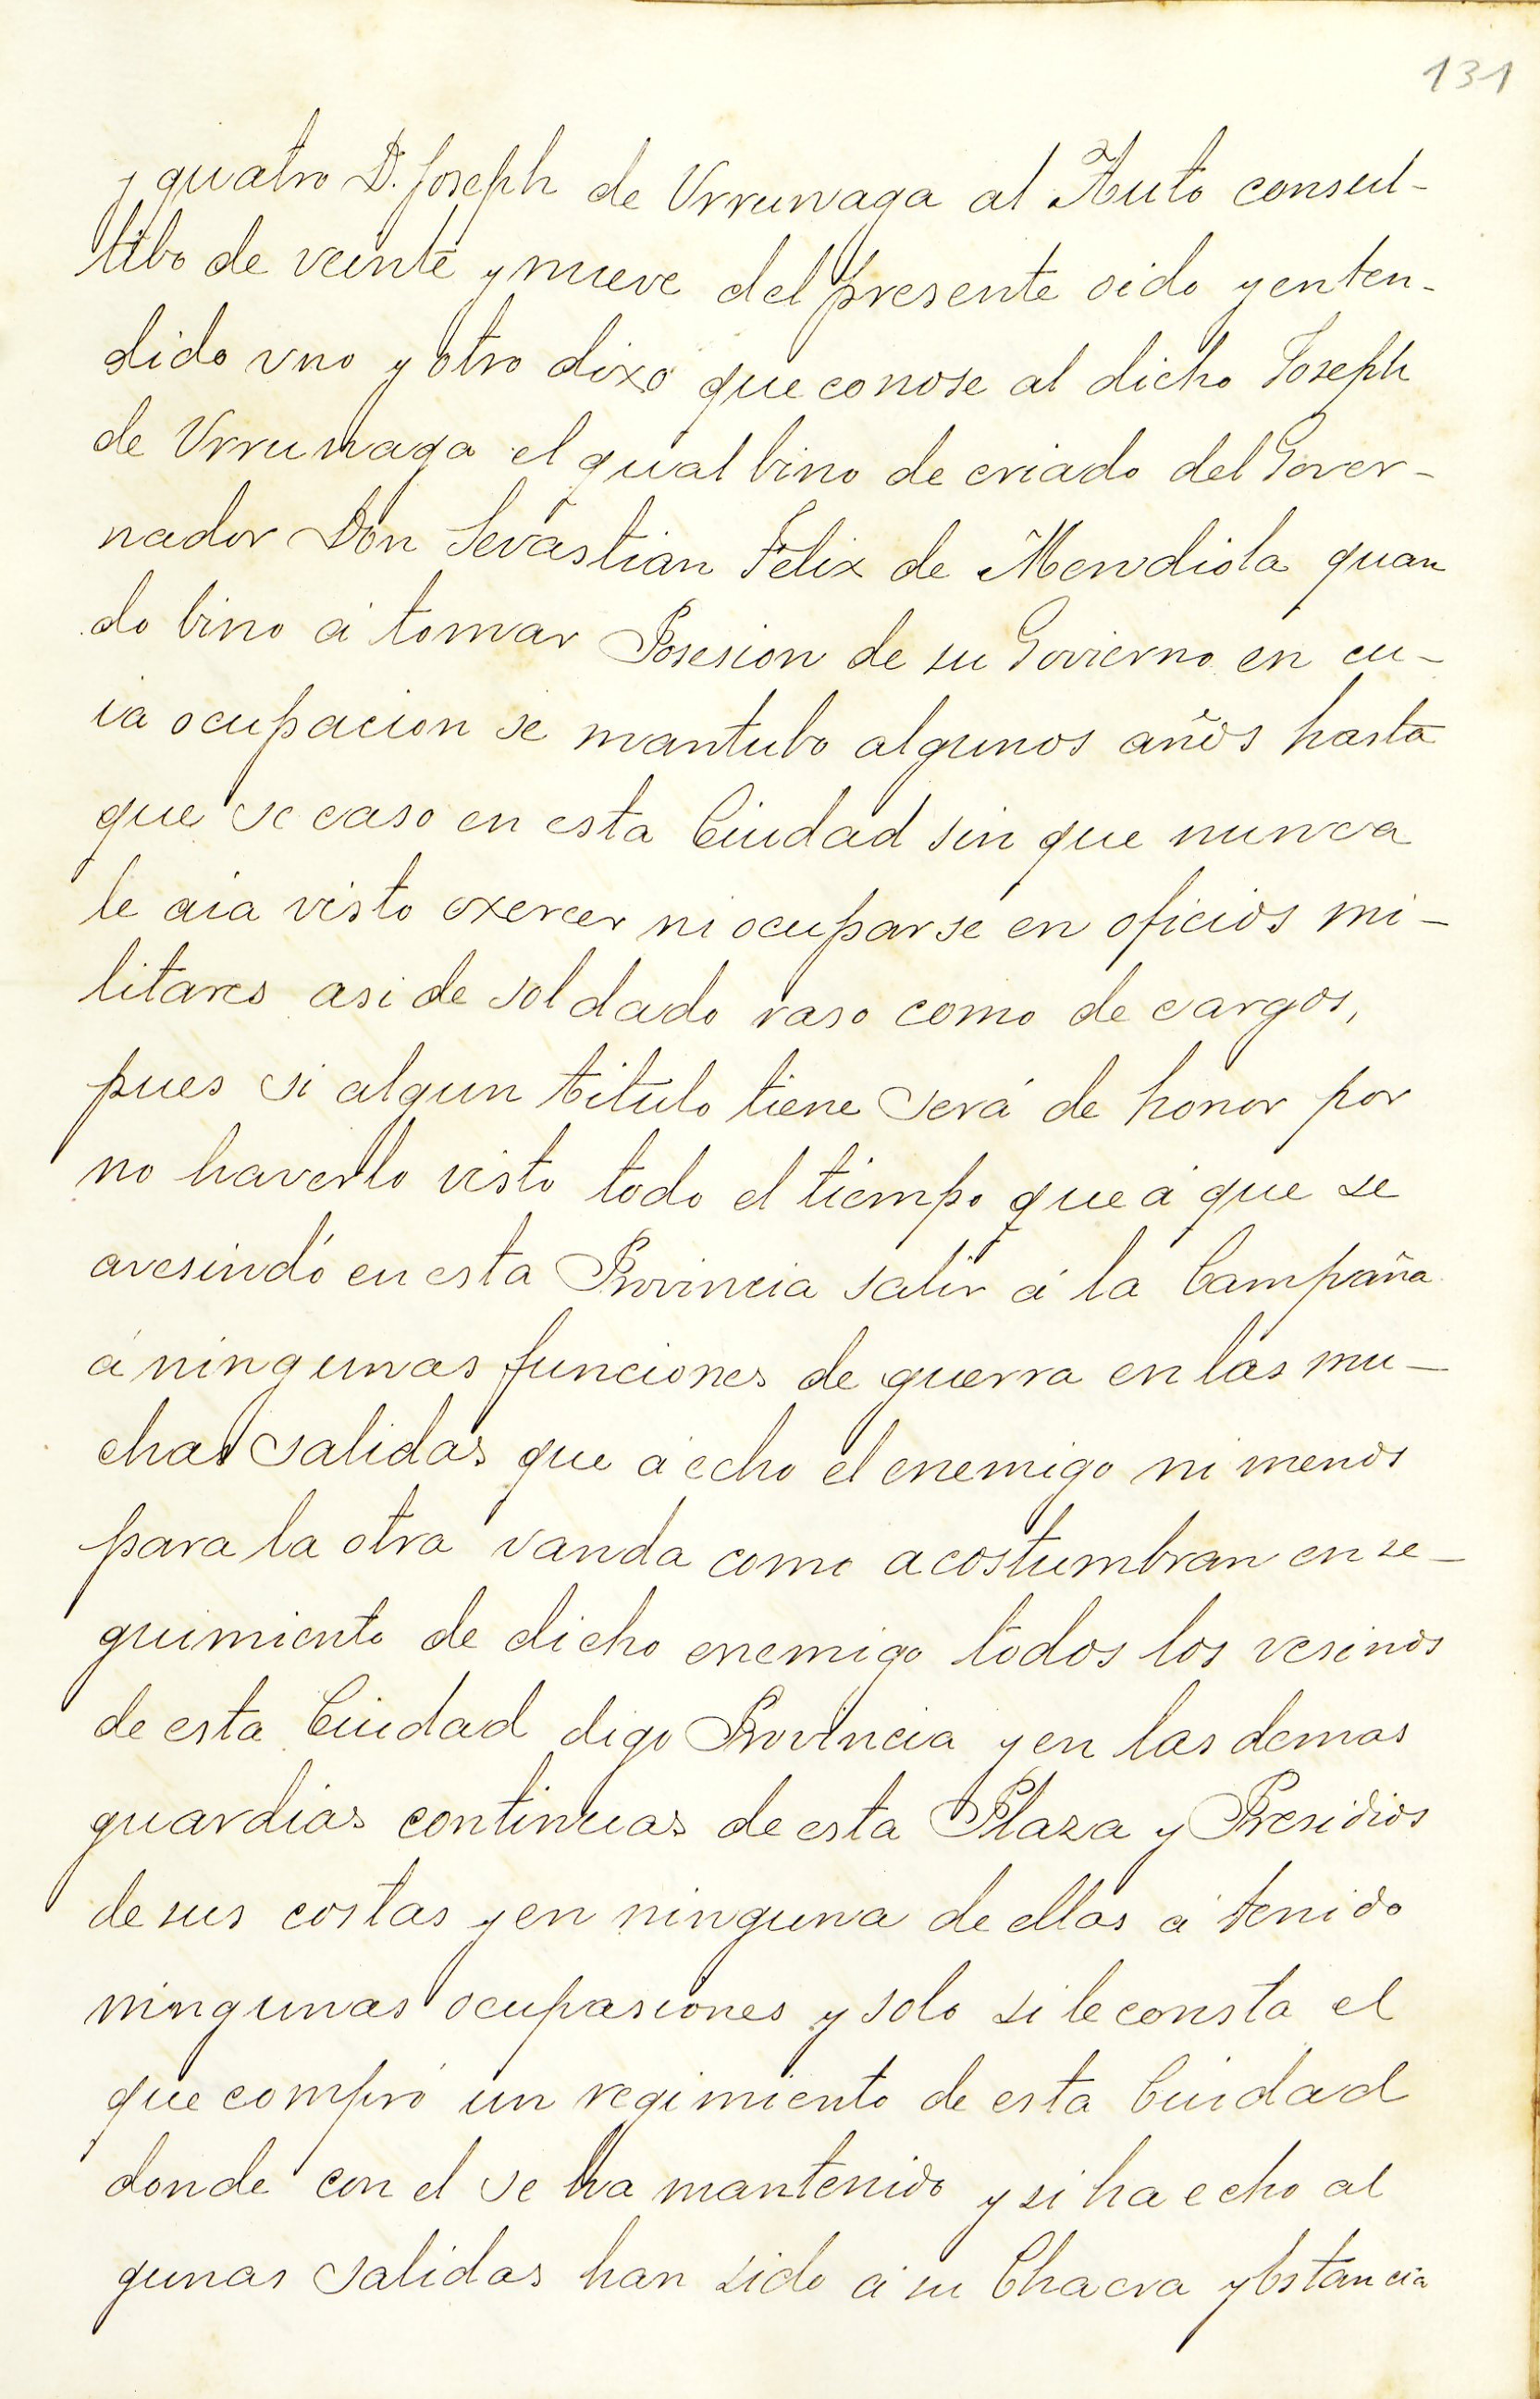 131
y quatro D. Joseph de Vrrunaga al Auto consul-
tibo de veinte y nueve del presente oido y enten-
dido vno y otro dixo que conose al dicho Joseph
de Vrrunaga el qual bino de criado del Gover-
nador Don Sevastian Felix de Mendiola quan
do bino á tomar Posesion de su Govierno en cu-
ia ocupacion se mantubo algunos años hasta
que se caso en esta Ciudad sin que nunca
le aia visto exercer ni ocuparse en oficios mi-
litares asi de soldado raso como de cargos,
pues si algun titulo tiene será de honor por
no haverlo visto todo el tiempo que á que se
avesindó en esta Provincia salir á la Campaña
á ningunas funciones de guerra en las mu-
chas salidas que á echo el enemigo ni menos
para la otra vanda como acostumbran en se-
guimiento de dicho enemigo todos los vesinos
de esta Ciudad digo Provincia y en las demas
guardias continuas de esta Plaza y Presidios
de sus costas y en ninguna de ellas á tenido
ningunas ocupasiones y solo si le consta el
que compró un regimiento de esta Ciudad
donde con el se ha mantenido y si ha echo al
gunas salidas han sido á su Chacra y Estancia